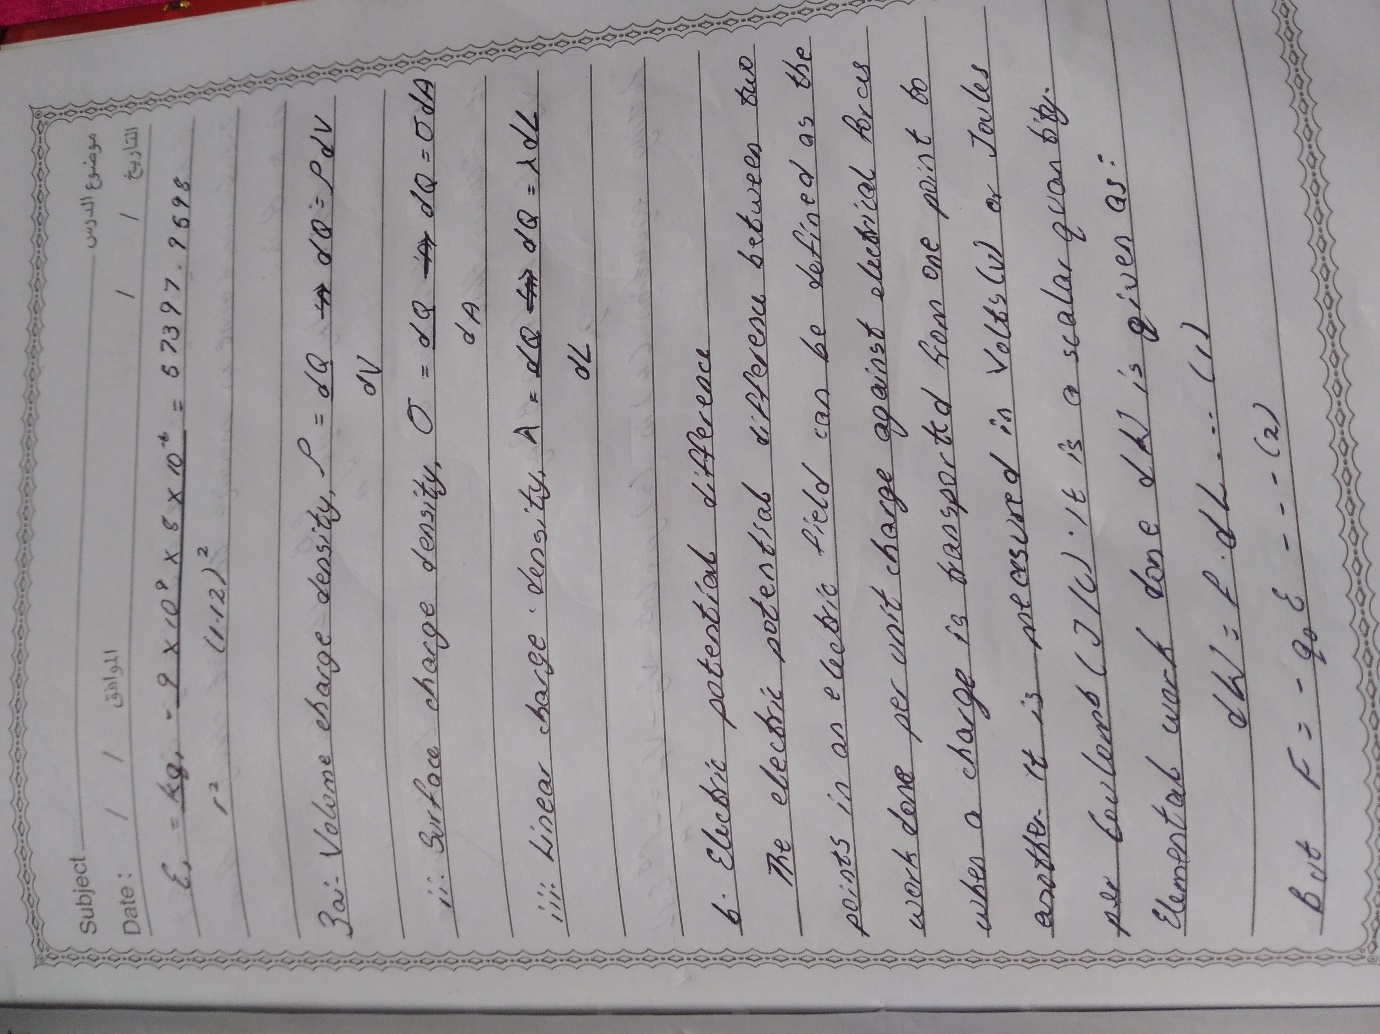 Subject موضوع الدرس
Date: / / الموافق / / التاريخ
E₁ = kq₁ = 9 x 10⁹ x 8 x 10⁻⁶ = 57397.9598
r² (1.12)²
3ai- Volume charge density, ρ = dQ ⇒ dQ = ρdV
dV
ii: Surface charge density, σ = dQ ⇒ dQ = σdA
dA
iii: Linear charge density, λ = dQ ⇒ dQ = λdL
dL
b. Electric potential difference
The electric potential difference between two
points in an electric field can be defined as the
work done per unit charge against electrical forces
when a charge is transported from one point to
another. It is measured in Volts(V) or Joules
per Coulomb (J/C). It is a scalar quantity.
Elemental work done dW is given as:
dW = F . dL ... (1)
But F = - q₀E - - - - (2)